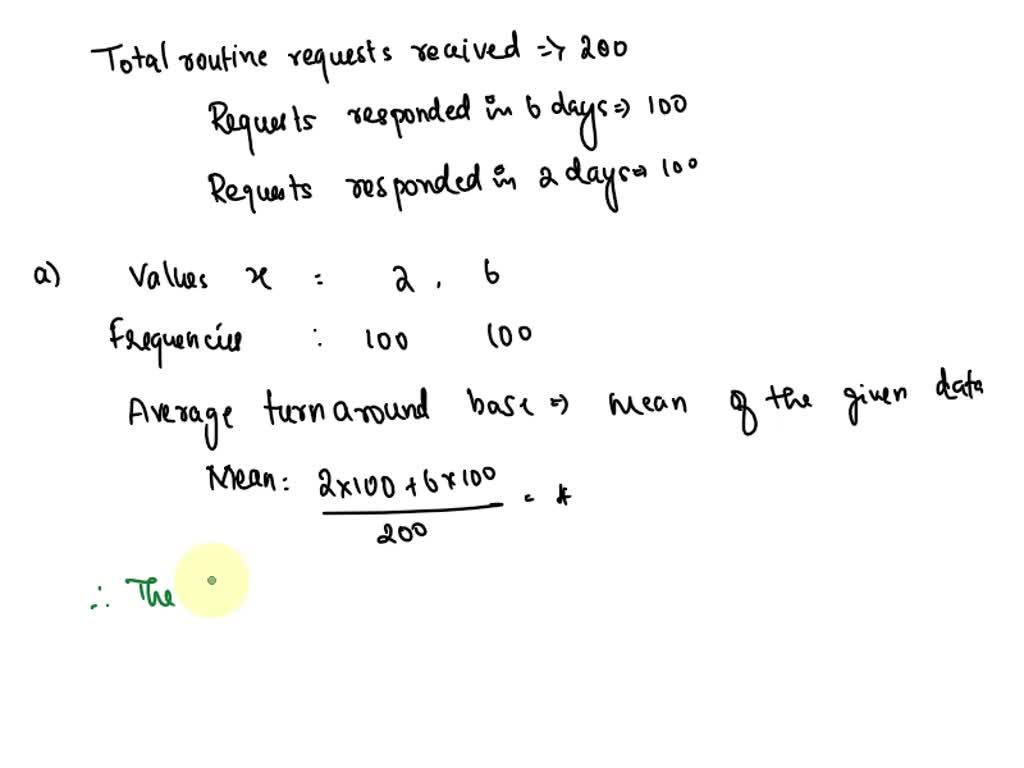 Total routine requests received => 200
Requests responded in 6 days => 100
Requests responded in 2 days => 100
a) Values x : 2 , 6
Frequencies : 100 100
Average turnaround base => Mean of the given data
Mean: 2x100 + 6x100
200
= 4
∴ The